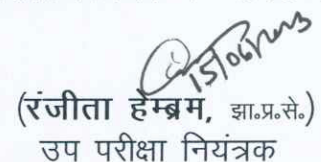 15/06/2023
(रंजीता हेम्ब्रम, झा॰प्र॰से॰)
उप परीक्षा नियंत्रक